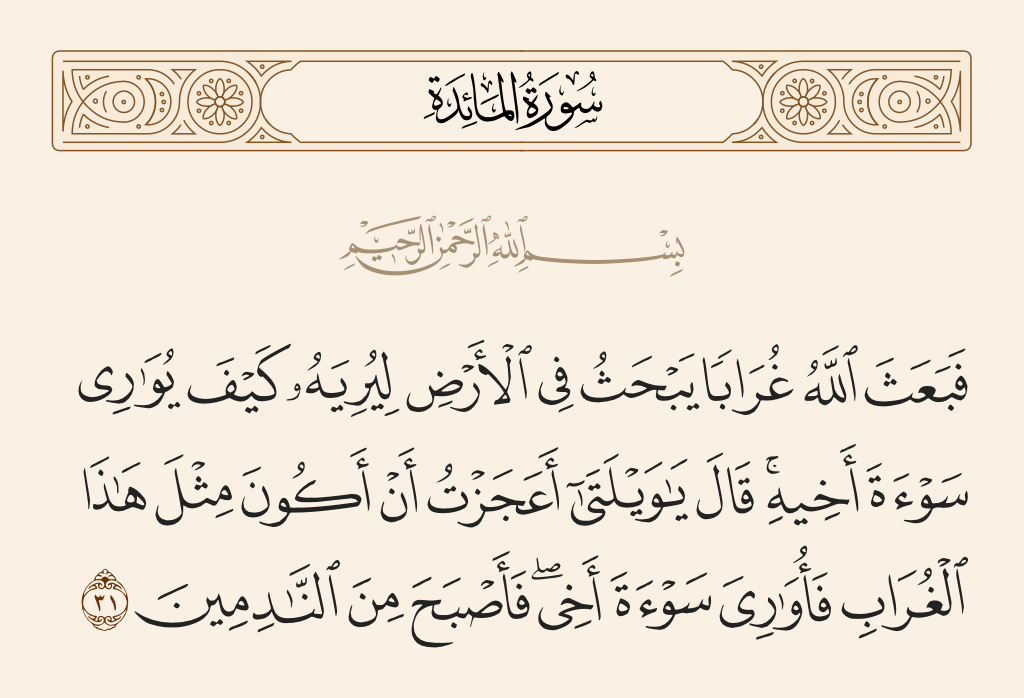 سُورَةُ المَائِدَةِ
بِسْمِ ٱللَّهِ ٱلرَّحْمَٰنِ ٱلرَّحِيمِ
فَبَعَثَ ٱللَّهُ غُرَابًا يَبْحَثُ فِى ٱلْأَرْضِ لِيُرِيَهُۥ كَيْفَ يُوَٰرِى
سَوْءَةَ أَخِيهِ ۚ قَالَ يَٰوَيْلَتَىٰٓ أَعَجَزْتُ أَنْ أَكُونَ مِثْلَ هَٰذَا
ٱلْغُرَابِ فَأُوَٰرِىَ سَوْءَةَ أَخِى ۖ فَأَصْبَحَ مِنَ ٱلنَّٰدِمِينَ ٣١